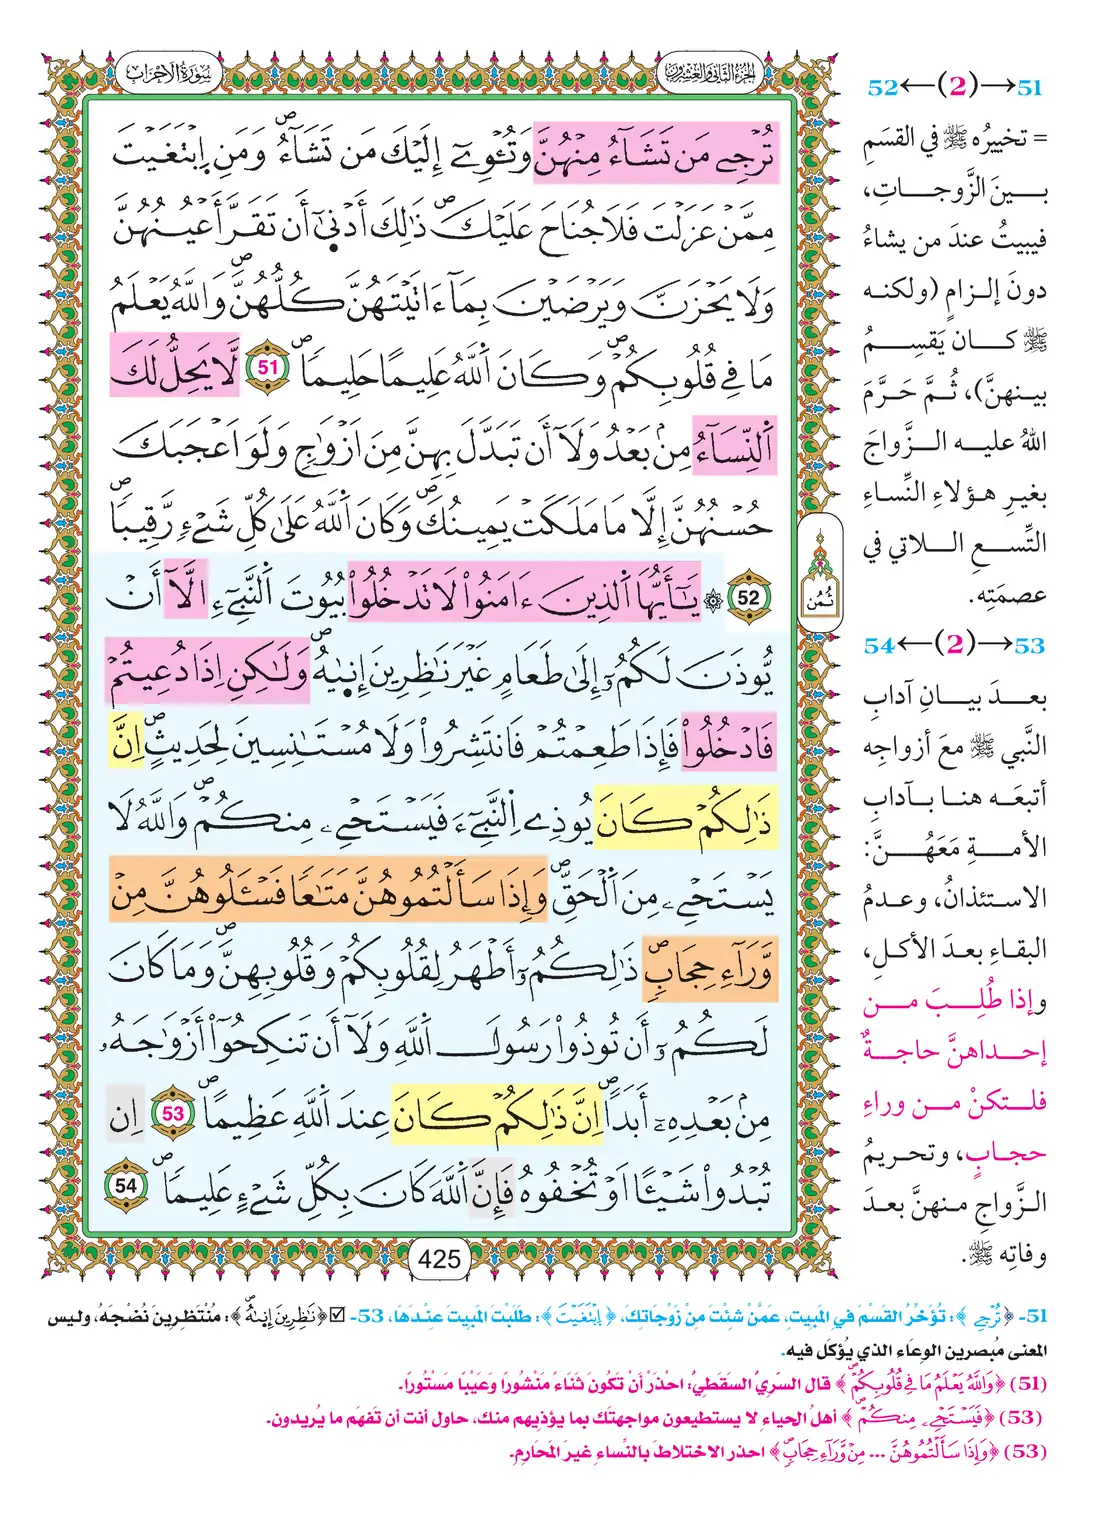 الجزء الثاني والعشرون
سورة الأحزاب
تُرْجِے مَن تَشَآءُ مِنْهُنَّ وَتُـْٔوِےٓ إِلَيْكَ مَن تَشَآءُۖ وَمَنِ اِبْتَغَيْتَ
مِمَّنْ عَزَلْتَ فَلَا جُنَاحَ عَلَيْكَۖ ذَٰلِكَ أَدْن۪ىٰٓ أَن تَقَرَّ أَعْيُنُهُنَّ
وَلَا يَحْزَنَّ وَيَرْضَيْنَ بِمَآ ءَاتَيْتَهُنَّ كُلُّهُنَّۖ وَاللَّهُ يَعْلَمُ
مَا فِے قُلُوبِكُمْۖ وَكَانَ اَ۬للَّهُ عَلِيمًا حَلِيمًاۖ 51 لَّا يَحِلُّ لَكَ
اَ۬لنِّسَآءُ مِنۢ بَعْدُ وَلَآ أَن تَبَدَّلَ بِهِنَّ مِنَ اَزْوَٰجٍ وَلَوَ اَعْجَبَكَ
حُسْنُهُنَّ إِلَّا مَا مَلَكَتْ يَمِينُكَۖ وَكَانَ اَ۬للَّهُ عَلَىٰ كُلِّ شَےْءٍ رَّقِيبًاۖ
52 ۞ يَٰٓأَيُّهَا اَ۬لذِينَ ءَامَنُواْ لَا تَدْخُلُواْ بُيُوتَ اَ۬لنَّبِےٓءِ اِلَّآ أَنْ
يُّوذَنَ لَكُمُۥٓ إِلَىٰ طَعَامٍ غَيْرَ نَٰظِرِينَ إِن۪ىٰهُۖ وَلَٰكِنِ اِذَا دُعِيتُمْ
فَادْخُلُواْ فَإِذَا طَعِمْتُمْ فَانتَشِرُواْ وَلَا مُسْتَٰنِسِينَ لِحَدِيثٍۖ اِنَّ
ذَٰلِكُمْ كَانَ يُوذِے اِ۬لنَّبِےٓءَ فَيَسْتَحْےِۦ مِنكُمْۖ وَاللَّهُ لَا
يَسْتَحْےِۦ مِنَ اَ۬لْحَقِّۖ وَإِذَا سَأَلْتُمُوهُنَّ مَتَٰعًا فَسْـَٔلُوهُنَّ مِنْ
وَّرَآءِ حِجَابٍۖ ذَٰلِكُمُۥٓ أَطْهَرُ لِقُلُوبِكُمْ وَقُلُوبِهِنَّۖ وَمَا كَانَ
لَكُمُۥٓ أَن تُوذُواْ رَسُولَ اَ۬للَّهِ وَلَآ أَن تَنكِحُوٓاْ أَزْوَٰجَهُۥ
مِنۢ بَعْدِهِۦٓ أَبَدًاۖ اِنَّ ذَٰلِكُمْ كَانَ عِندَ اَ۬للَّهِ عَظِيمًاۖ 53 اِن
تُبْدُواْ شَيْـًٔا اَوْ تُخْفُوهُ فَإِنَّ اَ۬للَّهَ كَانَ بِكُلِّ شَےْءٍ عَلِيمًاۖ 54
ثُمُن
425
51←(2)→52
= تخييرُه ﷺ في القسَمِ
بـينَ الزَّوجـاتِ،
فيبيتُ عندَ من يشاءُ
دونَ إلـزامٍ (ولكنـه
ﷺ كـان يَقسِـمُ
بيـنهنَّ)، ثُـمَّ حَـرَّمَ
اللهُ عليـه الـزَّواجَ
بغيرِ هـؤلاءِ النِّساءِ
التِّسـعِ الـلاتي في
عصمَتِه.
53←(2)→54
بعـدَ بيـانِ آدابِ
النَّبي ﷺ معَ أزواجِه
أتبعَـه هنـا بـآدابِ
الأمـةِ مَعَهُـنَّ:
الاستئذانُ، وعدمُ
البقـاءِ بعـدَ الأكـلِ،
وإذا طُلِـبَ مـن
إحـداهنَّ حاجـةٌ
فلـتكنْ مـن وراءِ
حجـابٍ، وتحـريمُ
الـزَّواجِ مـنهنَّ بعـدَ
وفاتِه ﷺ.
51- ﴿تُرْجِے﴾: تُؤَخِّرُ القَسْمَ فِي المَبِيتِ، عَمَّنْ شِئْتَ مِنْ زَوْجَاتِكَ، ﴿اِبْتَغَيْتَ﴾: طَلَبْتَ المَبِيتَ عِنْدَهَا، 53- ☑﴿نَٰظِرِينَ إِن۪ىٰهُۖ﴾: مُنْتَظِرِينَ نُضْجَهُ، وليس
المعنى مُبصرين الوعَاء الذي يُؤكل فيه.
(51) ﴿وَاللَّهُ يَعْلَمُ مَا فِے قُلُوبِكُمْۖ﴾ قال السّريُ السقطيُّ: احذَرْ أنْ تكُونَ ثَنَاءً مَنْشُورًا وَعَيْبًا مَسْتُورًا.
(53) ﴿فَيَسْتَحْےِۦ مِنكُمْۖ﴾ أهلُ الحياءِ لا يستطيعون مواجهتَك بما يؤذيهم منك، حاول أنت أن تَفهَم ما يُريدون.
(53) ﴿وَإِذَا سَأَلْتُمُوهُنَّ ... مِنْ وَّرَآءِ حِجَابٍۖ﴾ احذر الاختلاطَ بالنِّساءِ غيرَ المَحَارمِ.